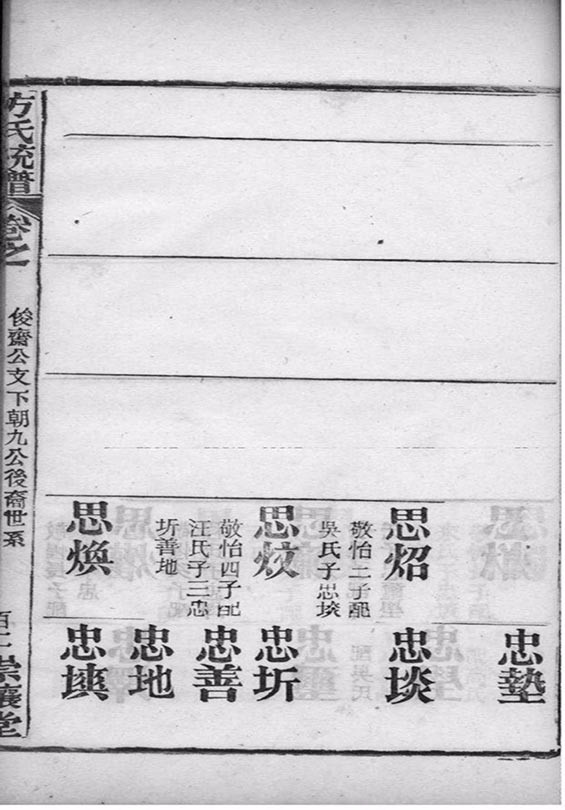 思炤
敬怡二子配
吳氏子忠埮
思炆
敬怡四子配
汪氏子三忠
圻善地
思煥
忠墊
忠埮
忠圻
忠善
忠地
方氏統譜
卷之一
俊齋公文下朝九公後裔世系
崇讓堂